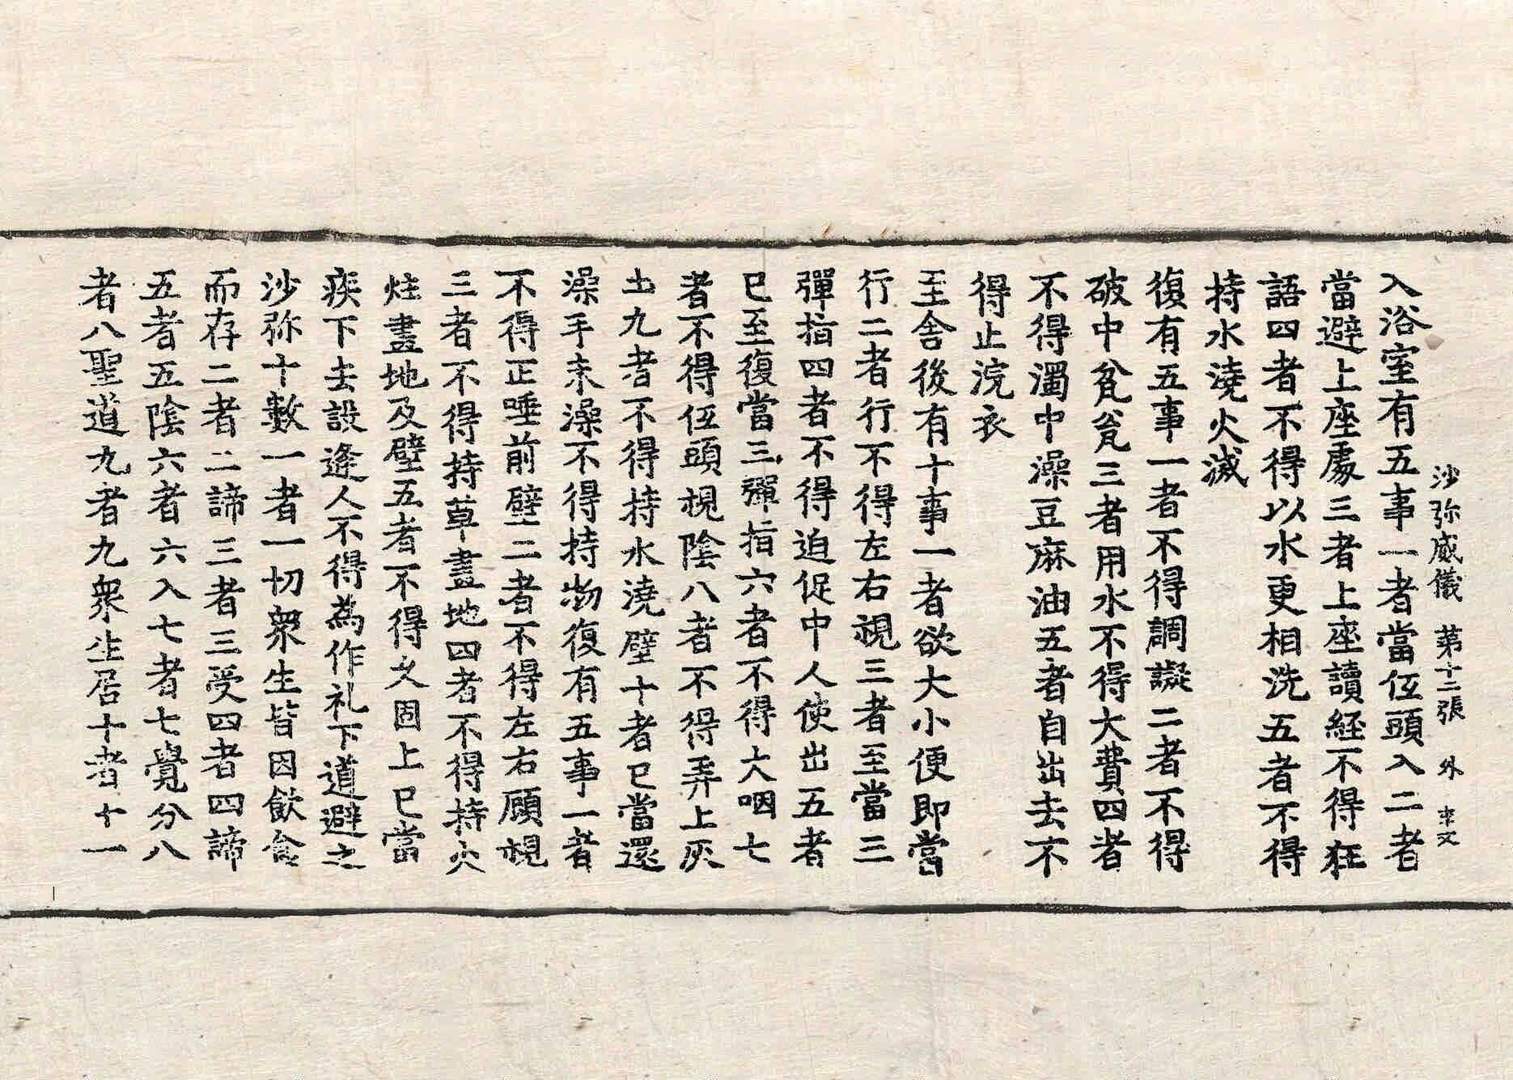 沙弥威儀 第十二張 外
入浴室有五事一者當伍頭入二者
當避上座處三者上座讀経不得狂
語四者不得以水更相洗五者不得
持水澆火滅
復有五事一者不得調譺二者不得
破中瓫瓮三者用水不得大費四者
不得濁中澡豆麻油五者自出去不
得止浣衣
至舍後有十事一者欲大小便即當
行二者行不得左右視三者至當三
彈指四者不得迫促中人使出五者
已至復當三彈指六者不得大咽七
者不得伍頭視陰八者不得弄上灰
土九者不得持水澆壁十者已當還
澡手未澡不得持物復有五事一者
不得正唾前壁二者不得左右顧視
三者不得持草畫地四者不得持火
炷畫地及壁五者不得久固上已當
疾下去設逢人不得為作礼下道避之
沙弥十數一者一切衆生皆因飲食
而存二者二諦三者三受四者四諦
五者五陰六者六入七者七覺分八
者八聖道九者九衆生居十者十一